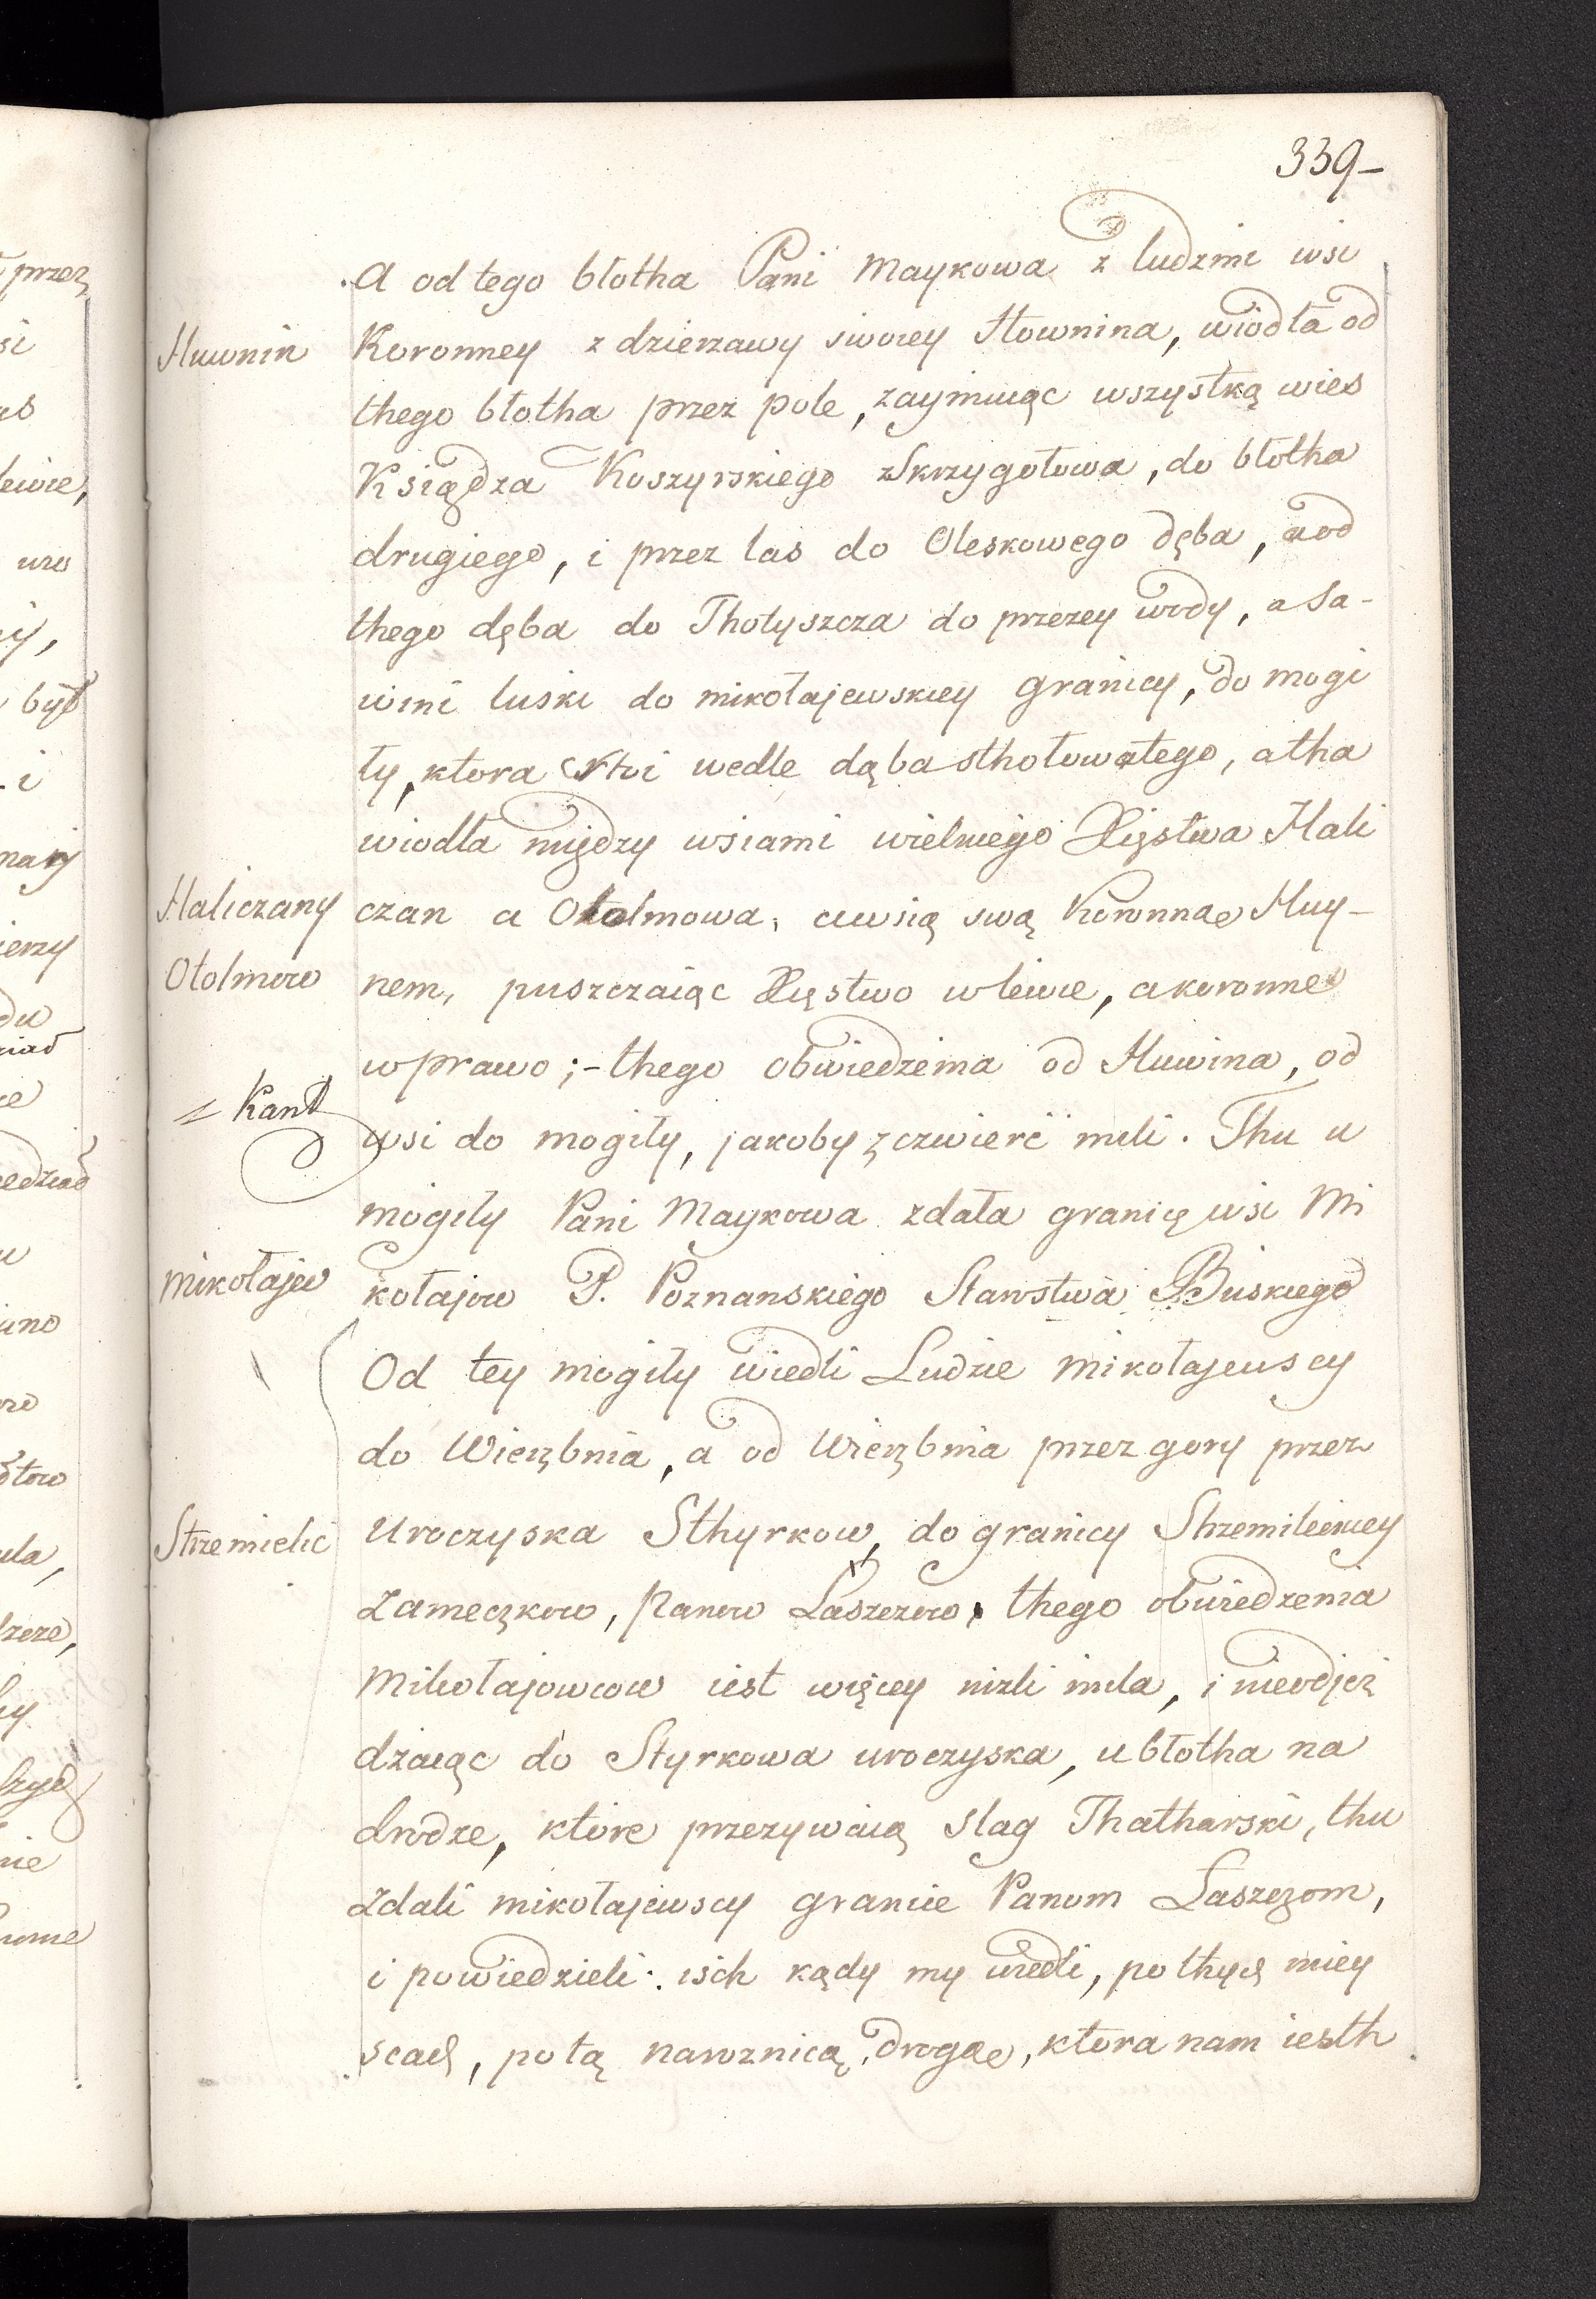 339-
A od tego błotha Pani Maykowa z ludzmi wsi
Huwnin
Koronney z dzierzawy swoiey Hownina, wiodła od
thego błotha przez pole, zaymuiąc wszystką wies
Ksiądza Koszyrskiego zSkrzygotowa, do błotha
drugiego, i przez las do Oleskowego dęba, aod
thego dęba do Thotyszcza do przezey wody, a Sa-
wini luski do mikołajewskiey granicy, do mogi
ły, ktora stoi wedle dąba sthołowatego, atha
wiodła między wsiami wielkiego Xięstwa Hali
Haliczany
czan a Otolmowa, awsią swą Koronnae Huy-
Otolmow
nem, puszczaiąc Xięstwo wlewie, akoronne
wprawo;- thego obwiedzenia od Huwina, od
Kant
wsi do mogiły, jakoby zczwierć mili. Thu u
mogiły Pani Maykowa zdała granicę wsi Mi
Mikołajew
kołajow P. Poznanskiego Starostwa Buskiego
Od tey mogiły wiedli Ludzie mikołajewscy
do Wierzbnia, a od Wierzbnia przez gory przez
Strzemielic
Uroczyska Sthyrkow, do granicy Strzemileckiey
Zameczkow, Panow Łaszczow, thego obwiedzenia
Mikołajowcow iest więcey nizli mila, i nieodjez
dzaiąc do Styrkowa uroczyska, u błotha na
drodze, ktore przezywaią slag Thatharski, thu
Zdali mikołajewscy granice Panom Łaszczom,
i powiedzieli: isch kądy my wiedli, po thych miey
scach, po tą narożnicą, drogae, ktora nam iesth